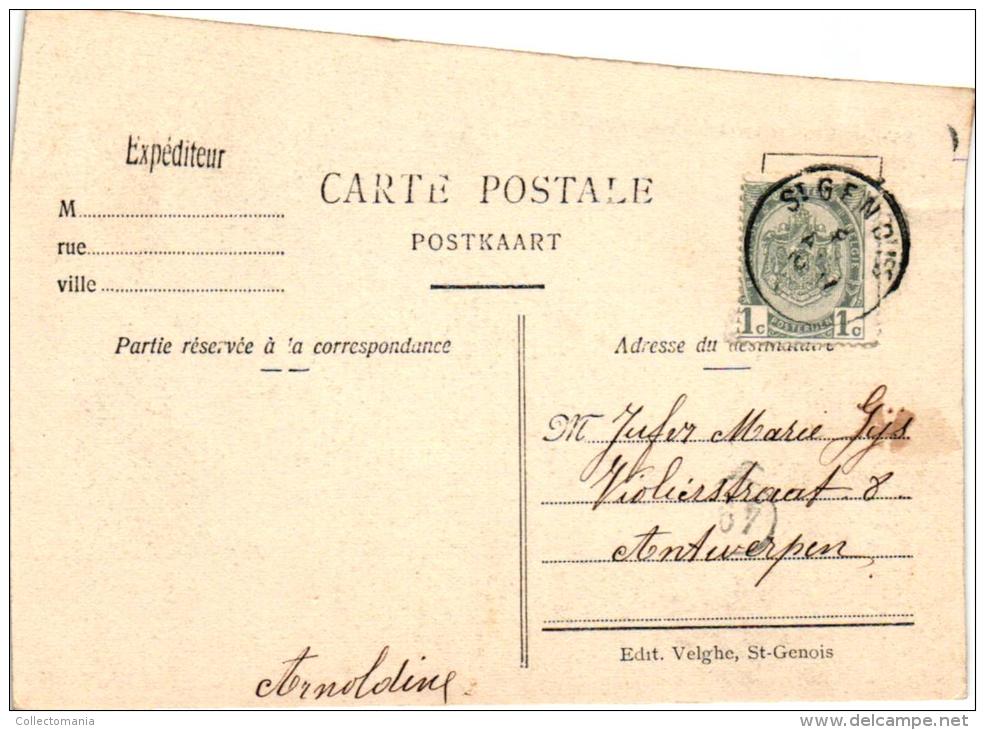 Expéditeur
M
rue
ville
CARTE POSTALE
POSTKAART
ST GENOIS
1c POSTERIJEN 1c
Partie réservée à la correspondance
Adresse du destinataire
M Jufer Marie Gijs
Violierstraat 8
67
Antwerpen
Edit. Velghe, St-Genois
Arnoldine
Collectomania
delcampe.net